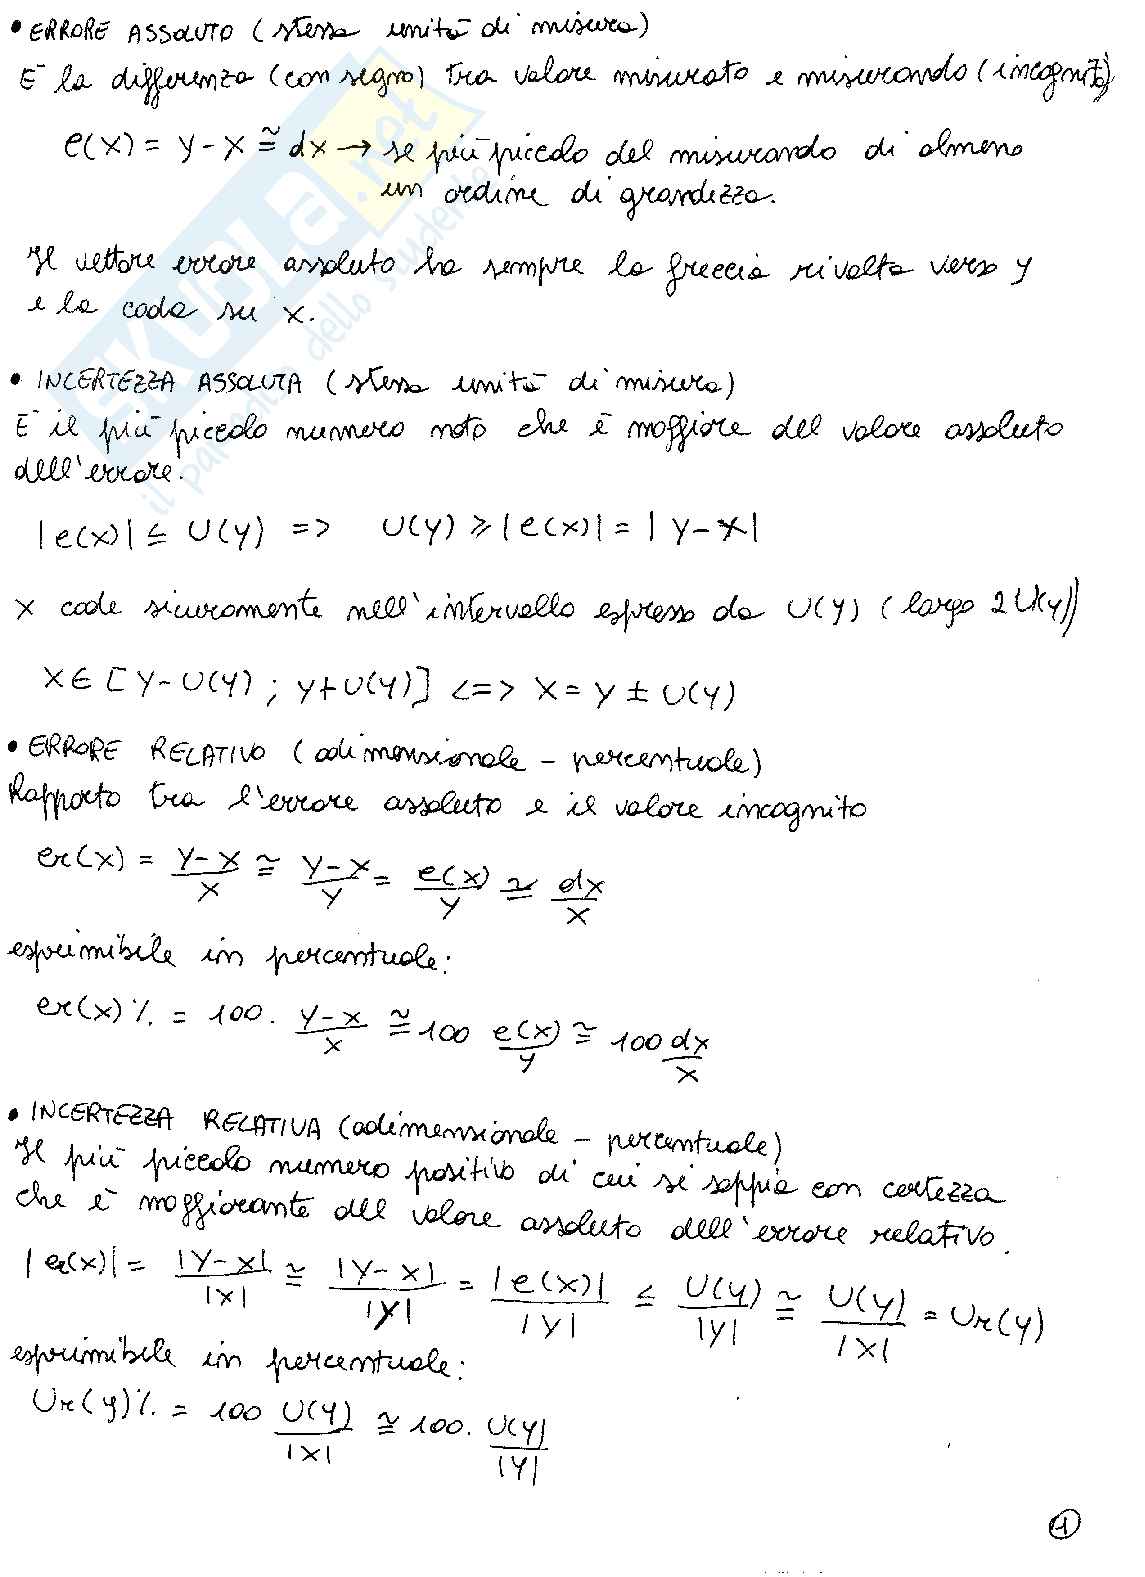 • ERRORE ASSOLUTO (stessa unità di misura)
E' la differenza (con segno) tra valore misurato e misurando (incognito)
e(x) = y-x ≅ dx → se più piccolo del misurando di almeno
un ordine di grandezza.
Il vettore errore assoluto ha sempre la freccia rivolta verso y
e la coda su x.
• INCERTEZZA ASSOLUTA (stessa unità di misura)
E' il più piccolo numero noto che è maggiore del valore assoluto
dell'errore.
|e(x)| ≤ U(y) => U(y) ≥ |e(x)| = |y-x|
x cade sicuramente nell'intervallo espresso da U(y) (largo 2U(y))
x ∈ [y-U(y) ; y+U(y)] <=> x = y ± U(y)
• ERRORE RELATIVO (adimensionale - percentuale)
Rapporto tra l'errore assoluto e il valore incognito
er(x) = (y-x)/x ≅ (y-x)/y = e(x)/y ≅ dx/x
esprimibile in percentuale:
er(x)% = 100 · (y-x)/x ≅ 100 e(x)/y ≅ 100 dx/x
• INCERTEZZA RELATIVA (adimensionale - percentuale)
Il più piccolo numero positivo di cui si sappia con certezza
che è maggiorante del valore assoluto dell'errore relativo.
|er(x)| = |y-x|/|x| ≅ |y-x|/|y| = |e(x)|/|y| ≤ U(y)/|y| ≅ U(y)/|x| = Ur(y)
esprimibile in percentuale:
Ur(y)% = 100 U(y)/|x| ≅ 100 · U(y)/|y|
1
SKUOLA.net
il paradiso dello studente